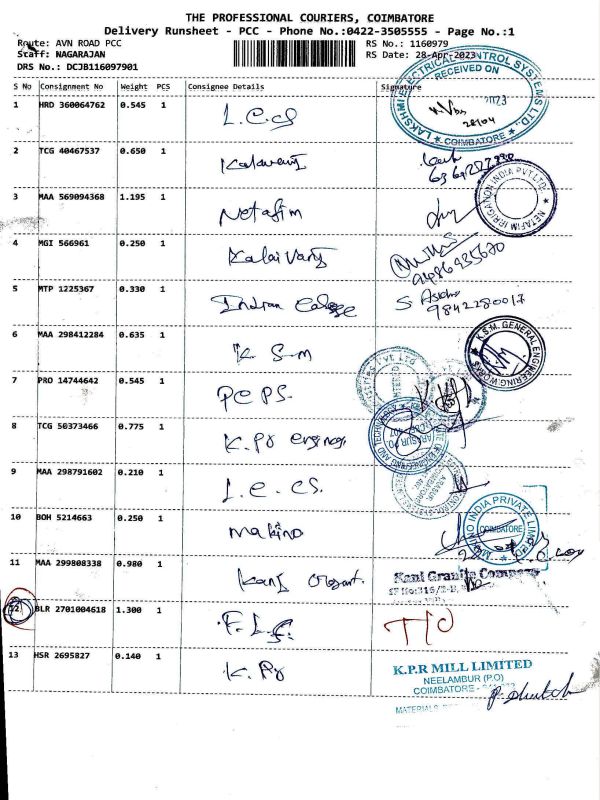 THE PROFESSIONAL COURIERS, COIMBATORE
Delivery Runsheet - PCC - Phone No.:0422-3505555 - Page No.:1
Route: AVN ROAD PCC RS No.: 1160979
Staff: NAGARAJAN RS Date: 28-Apr-2023
DRS No.: DCJB116097901
S No Consignment No Weight PCS Consignee Details Signature
LAKSHMI ELECTRICAL CONTROL SYSTEMS LTD.,
RECEIVED ON
2023
28/04
COIMBATORE
1 HRD 360064762 0.545 1 L.e.cs
2 TCG 40467537 0.650 1
NETAFIM IRRIGATION INDIA PVT LTD.
3 MAA 569094368 1.195 1 Netafim
4 MGI 566961 0.250 1 Kalaivani
9486935620
5 MTP 1225367 0.330 1 Indian College
9842280017
6 MAA 298412284 0.635 1 K S-m
K.S.M. GENERAL ENGINEERING WORKS
7 PRO 14744642 0.545 1 PePS.
8 TCG 50373466 0.775 1 K.Pr
9 MAA 298791602 0.210 1 L.e.cs.
10 BOH 5214663 0.250 1 makino
MAKINO INDIA PRIVATE LIMITED
COIMBATORE
11 MAA 299808338 0.980 1 Kani
Kani Granite Company
12 BLR 2701004618 1.300 1 F.L.C.
13 HSR 2695827 0.140 1 K.Pr
K.P.R MILL LIMITED
NEELAMBUR (P.O)
COIMBATORE -
MATERIALS